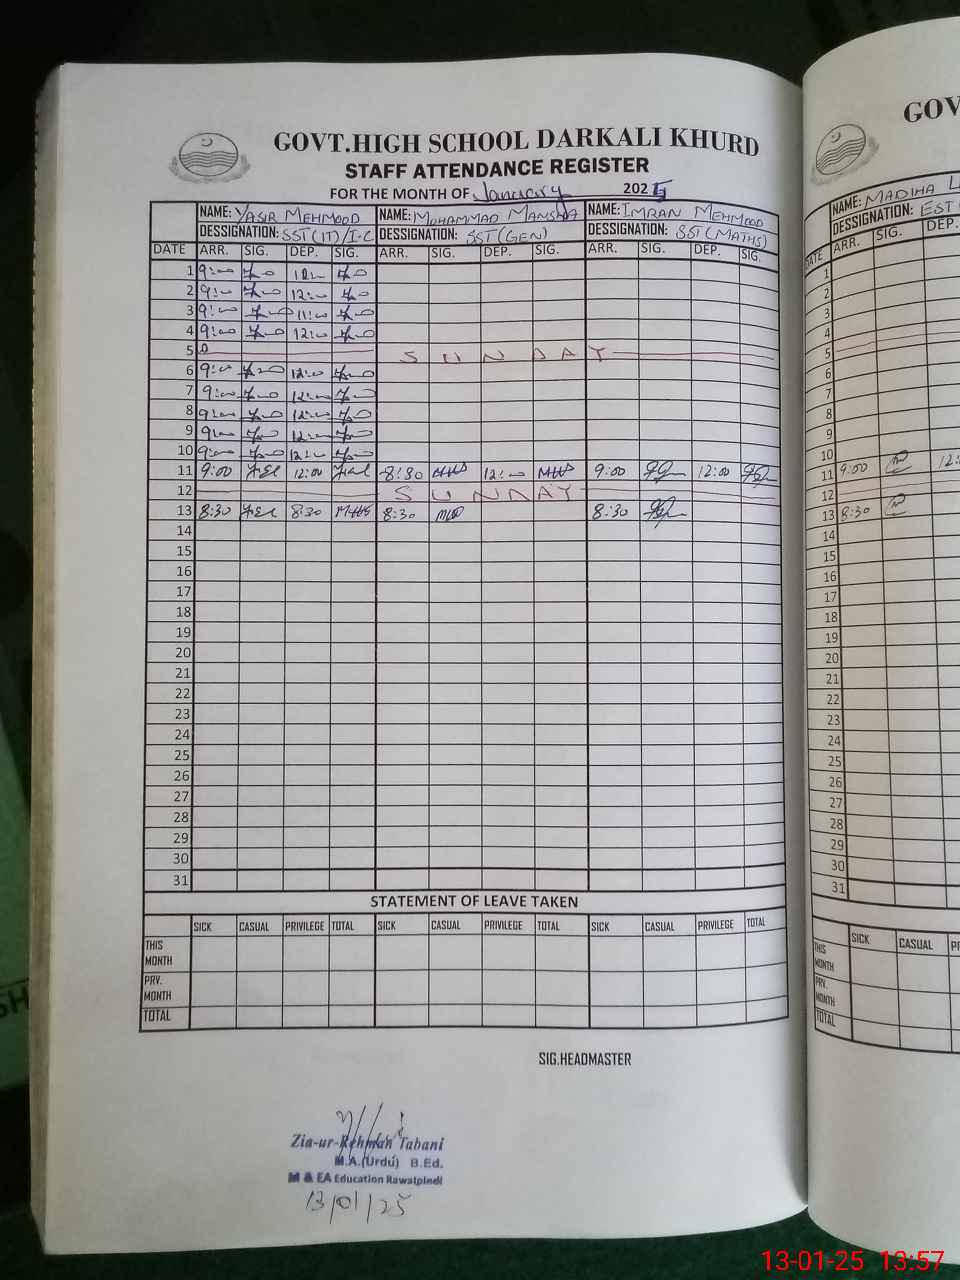 GOVT.HIGH SCHOOL DARKALI KHURD
STAFF ATTENDANCE REGISTER
FOR THE MONTH OF January 2025
NAME: YASIR MEHMOOD NAME: MUHAMMAD MANSHA NAME: IMRAN MEHMOOD
DESSIGNATION: SST(IT)/I-C DESSIGNATION: SST(GEN) DESSIGNATION: SST(MATHS)
DATE ARR. SIG. DEP. SIG. ARR. SIG. DEP. SIG. ARR. SIG. DEP. SIG.
1 9:00
2 9:00 12:00
3 9:00 11:00
4 9:00 12:00
5 SUNDAY
6 9:00 12:00
7 9:00 12:00
8 9:00 12:00
9 9:00 12:00
10 9:00 12:00
11 9:00 12:00 8:30 12:00 9:00 12:00
12 SUNDAY
13 8:30 8:30 8:30 8:30
14
15
16
17
18
19
20
21
22
23
24
25
26
27
28
29
30
31
STATEMENT OF LEAVE TAKEN
SICK CASUAL PRIVILEGE TOTAL SICK CASUAL PRIVILEGE TOTAL SICK CASUAL PRIVILEGE TOTAL
THIS MONTH
PRV. MONTH
TOTAL
SIG.HEADMASTER
Zia-ur-Rehman Tabani
M.A.(Urdu) B.Ed.
M & EA Education Rawalpindi
13/01/25
GOV
NAME: MADIHA
DESSIGNATION: EST
DATE ARR. SIG. DEP.
1
2
3
4
5
6
7
8
9
10
11 9:00 12:
12
13 8:30
14
15
16
17
18
19
20
21
22
23
24
25
26
27
28
29
30
31
SICK CASUAL
THIS MONTH
PRV. MONTH
TOTAL
13-01-25 13:57